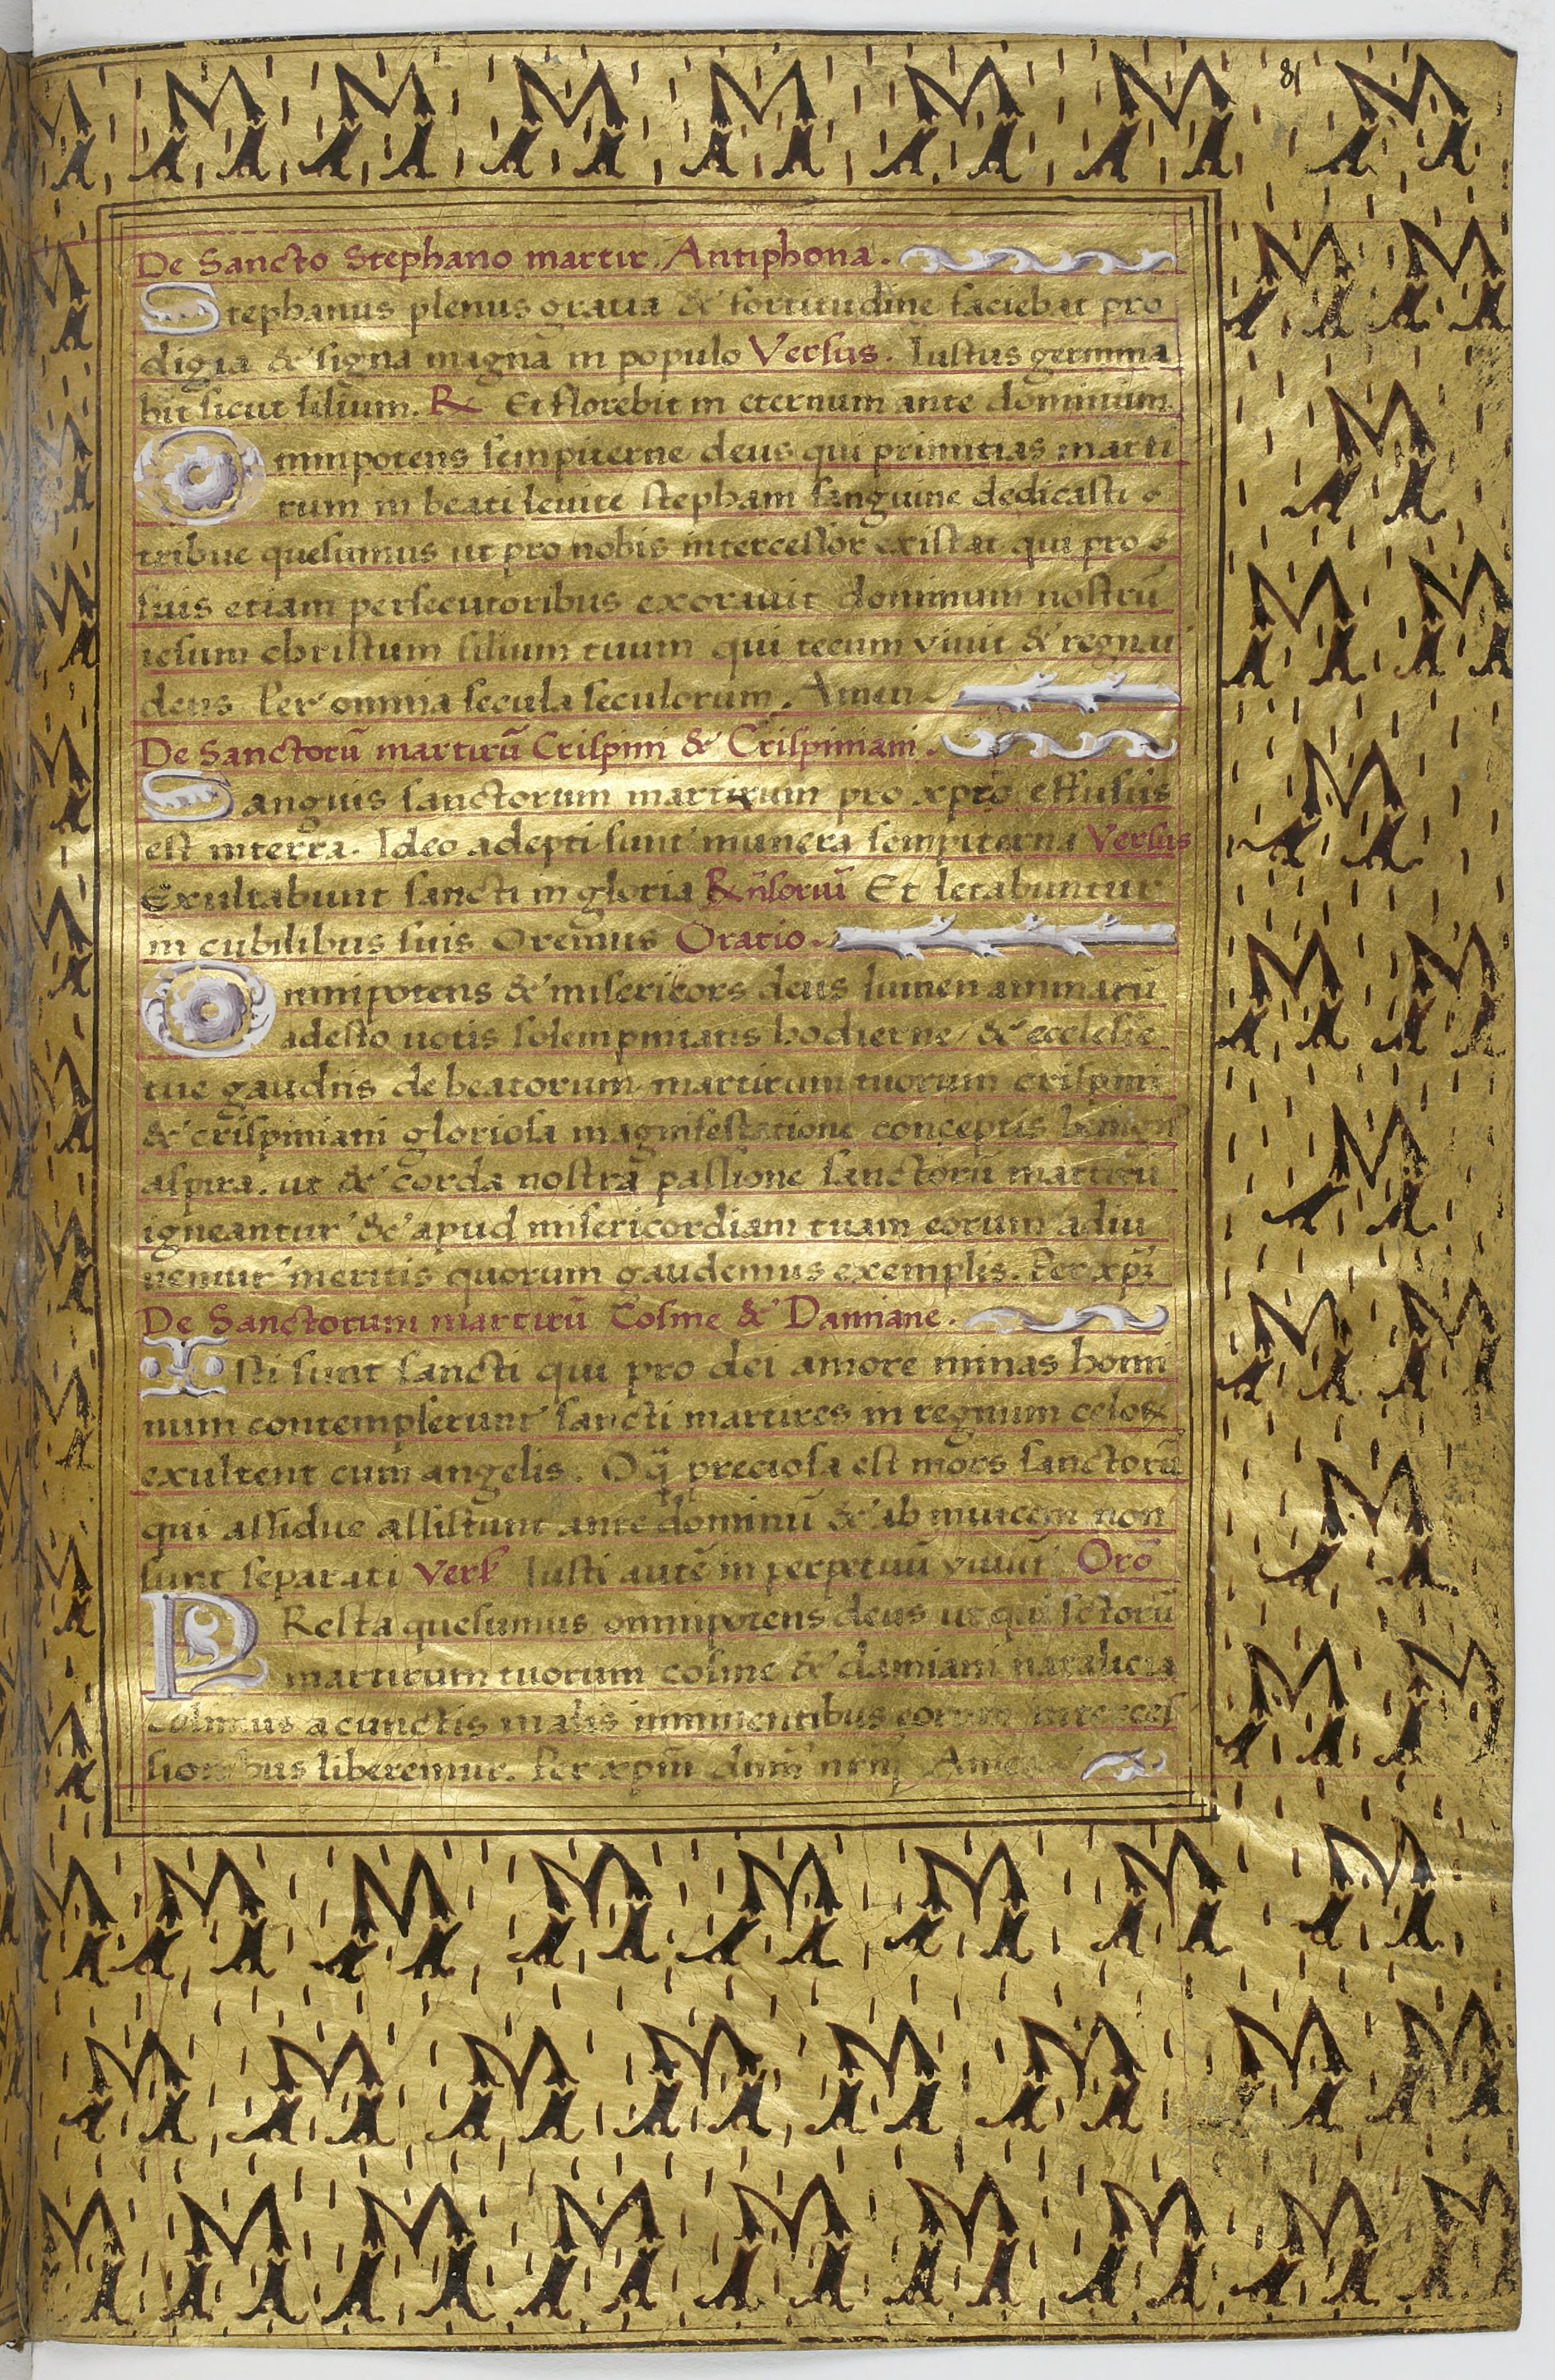 81
De Sancto Stephano martir. Antiphona.
Stephanus plenus gratia & fortitudine faciebat pro
digia & signa magna in populo Versus. Iustus germina
bit sicut lilium. R Et florebit in eternum ante dominum.
Omnipotens sempiterne deus qui primitias marti
rum in beati leuite stephani sanguine dedicasti
tribue quesumus ut pro nobis intercessor existat qui pro
suis etiam persecutoribus exorauit dominum nostrũ
iesum christum filium tuum qui tecum viuit & regnat
deus Per omnia secula seculorum. Amen
De Sanctorũ martirũ Crispini & Crispiniani.
Sanguis sanctorum martirum pro xpõ effusus
est interra. Ideo adepti sunt munera sempiterna Versus
Exultabunt sancti in gloria Rñsoriũ Et letabuntur
in cubilibus suis Oremus Oratio.
Omnipotens & misericors deus lumen animarũ
adesto uotis solempnitatis hodierne / & ecclesie
tue gaudiis de beatorum martirum tuorum crispini
& crispiniani gloriosa magnifestatione conceptis benign
aspira. ut & corda nostra passione sanctorũ martirũ
igneantur & apud misericordiam tuam eorum adiu
uentur meritis quorum gaudemus exemplis. Per xpm̃
De Sanctorum martirũ Cosme & Damiane.
Isti sunt sancti qui pro dei amore minas homi
num contempserunt sancti martires in regnum celoꝝ
exultent cum angelis. O q̃ preciosa est mors sanctorũ
qui assidue assistunt ante dominũ & ab inuicem non
sunt separati Vers Iusti autẽ in perpetuũ viuũt Orõ
PResta quesumus omnipotens deus ut qui sctorũ
martirum tuorum cosme & damiani natalicia
colimus a cunctis malis imminentibus eorum interces
sionibus liberemur. Per xpm̃ dnm̃ nrm̃ Amen